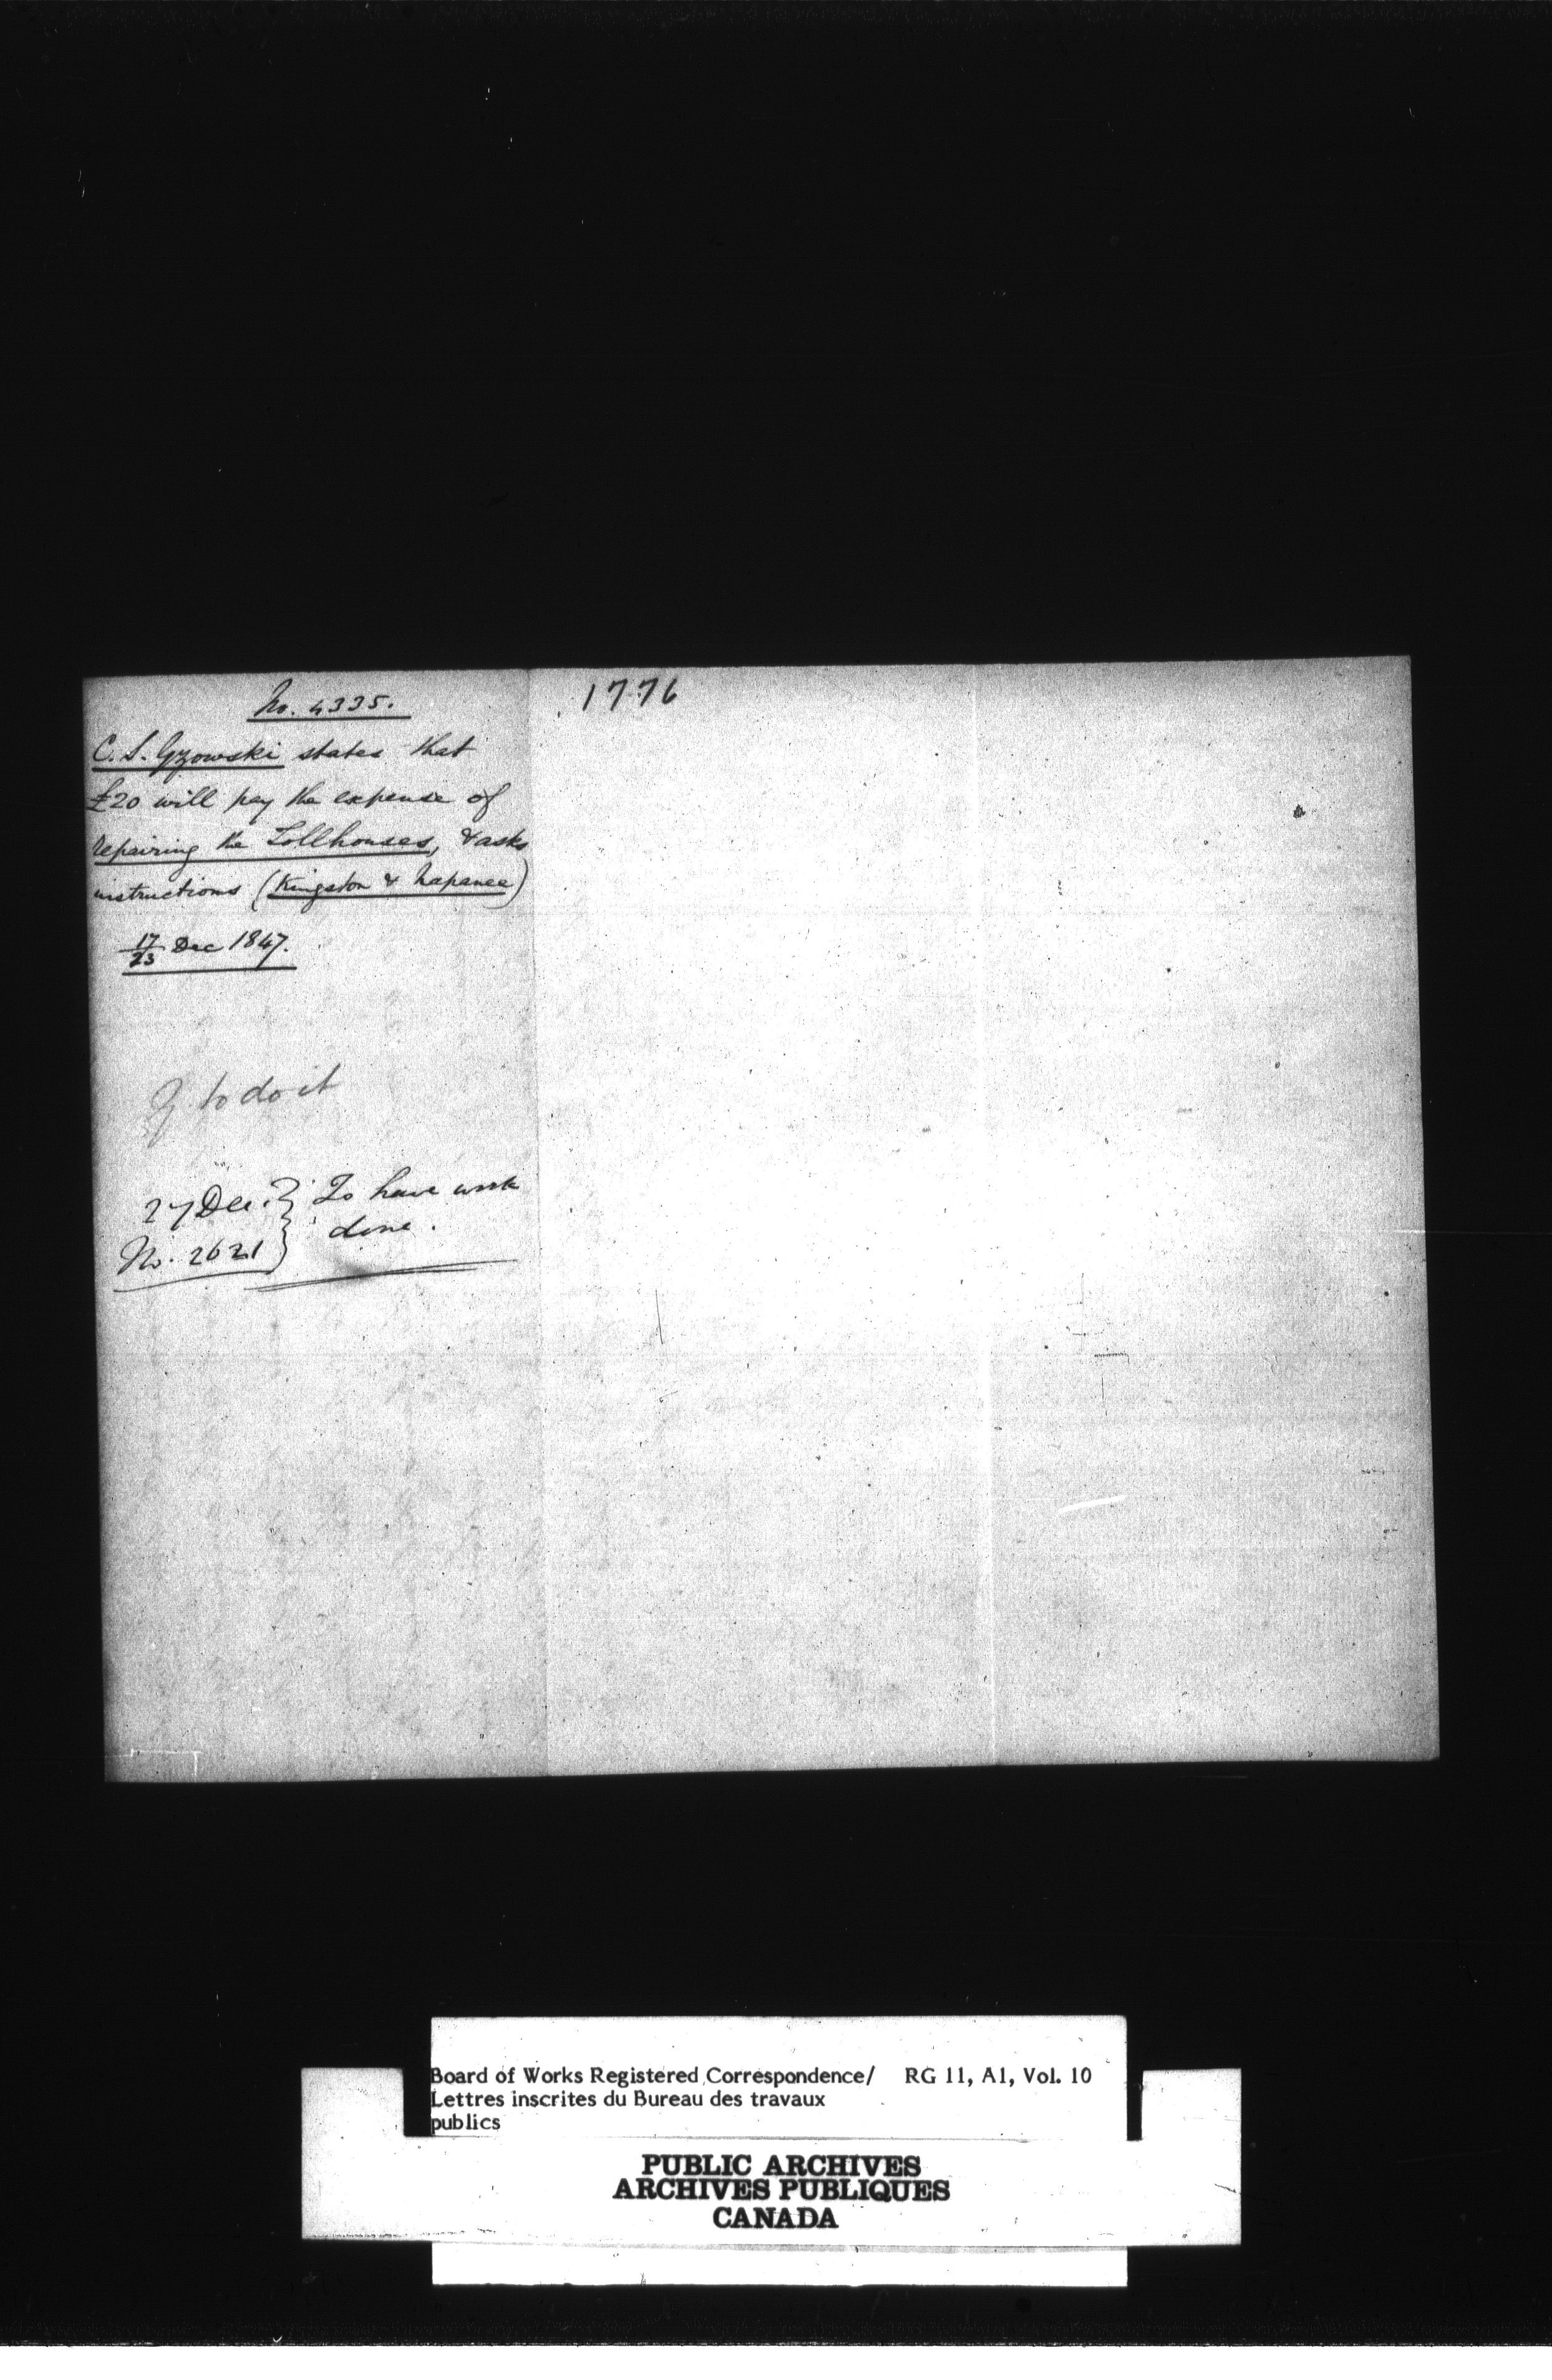 No. 4335.
C. S. Gzowski states that
£20 will pay the expense of
repairing the Tollhouses, & asks
instructions (Kingston & Napanee)
17/23 Dec 1847.
G. to do it
27 Dec. } To have work
No. 2621 } done.
1776
Board of Works Registered Correspondence/ RG 11, A1, Vol. 10
Lettres inscrites du Bureau des travaux
publics
PUBLIC ARCHIVES
ARCHIVES PUBLIQUES
CANADA